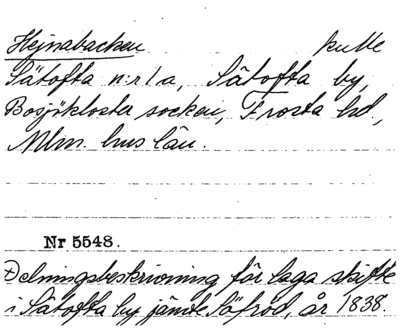 Hejnabacken kulle
Sätofta n:r 1 a, Sätofta by,
Bosjökloster socken, Frosta hd,
Mlm. hus län.
Nr 5548.
Delningsbeskrivning för laga skifte
i Sätofta by jämte Säfröd, år 1838.